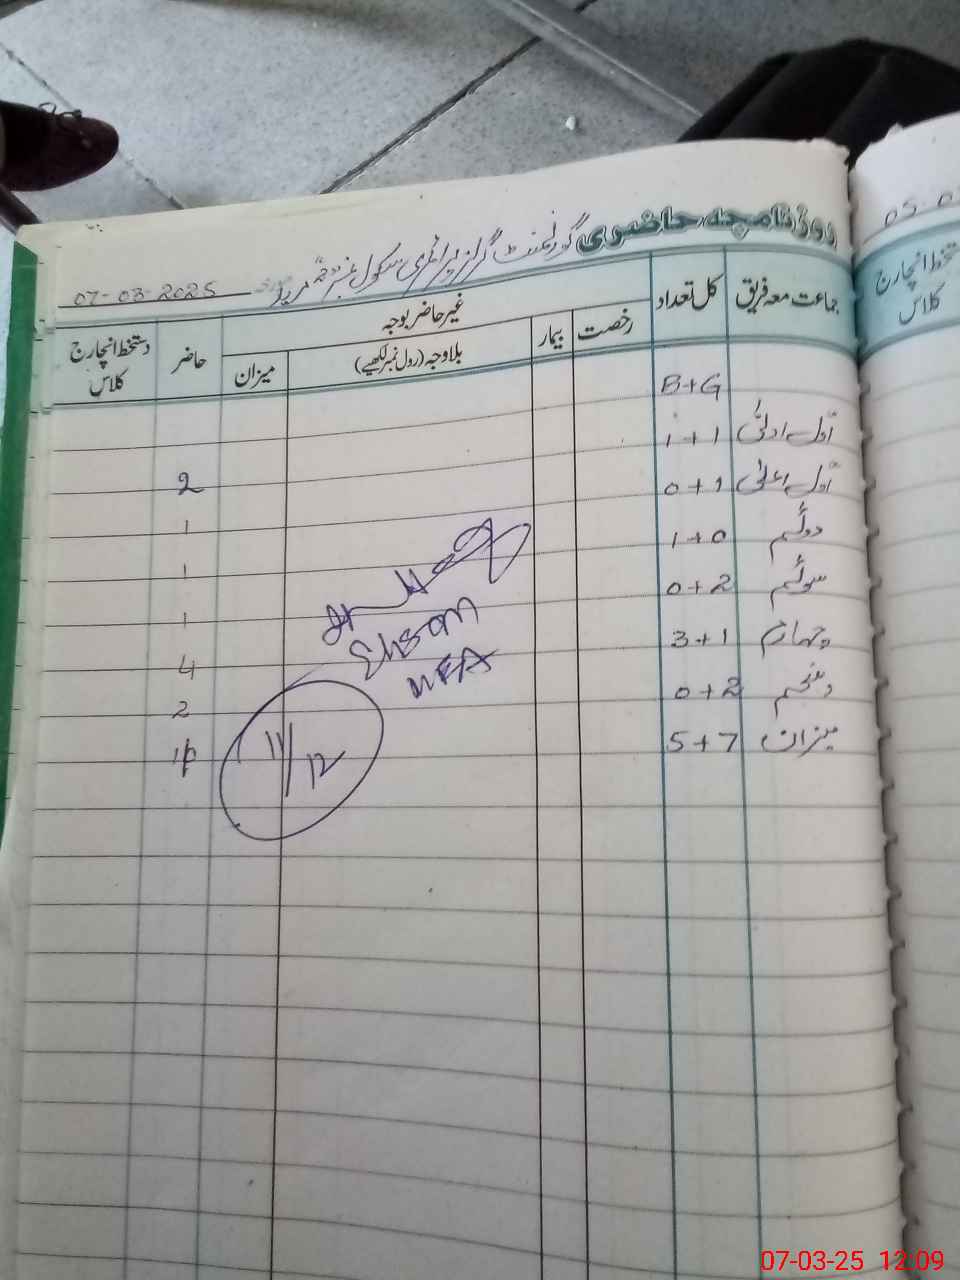 روزنامچہ حاضری گورنمنٹ گرلز پرائمری سکول نمبر 07-03-2025
جماعت معہ فریق کل تعداد غیر حاضر بوجہ حاضر دستخط انچارج کلاس
رخصت بیمار بلاوجہ (رول نمبر لکھیے) میزان
B+G
اول ادنیٰ 1+1 2
اول اعلیٰ 0+1 1
دوئم 1+0 1
سوئم 0+2 1
چہارم 3+1 4
پنجم 0+2 2
میزان 5+7
Ehsan
MEA
11/12
05-0
دستخط انچارج
کلاس
07-03-25 12:09